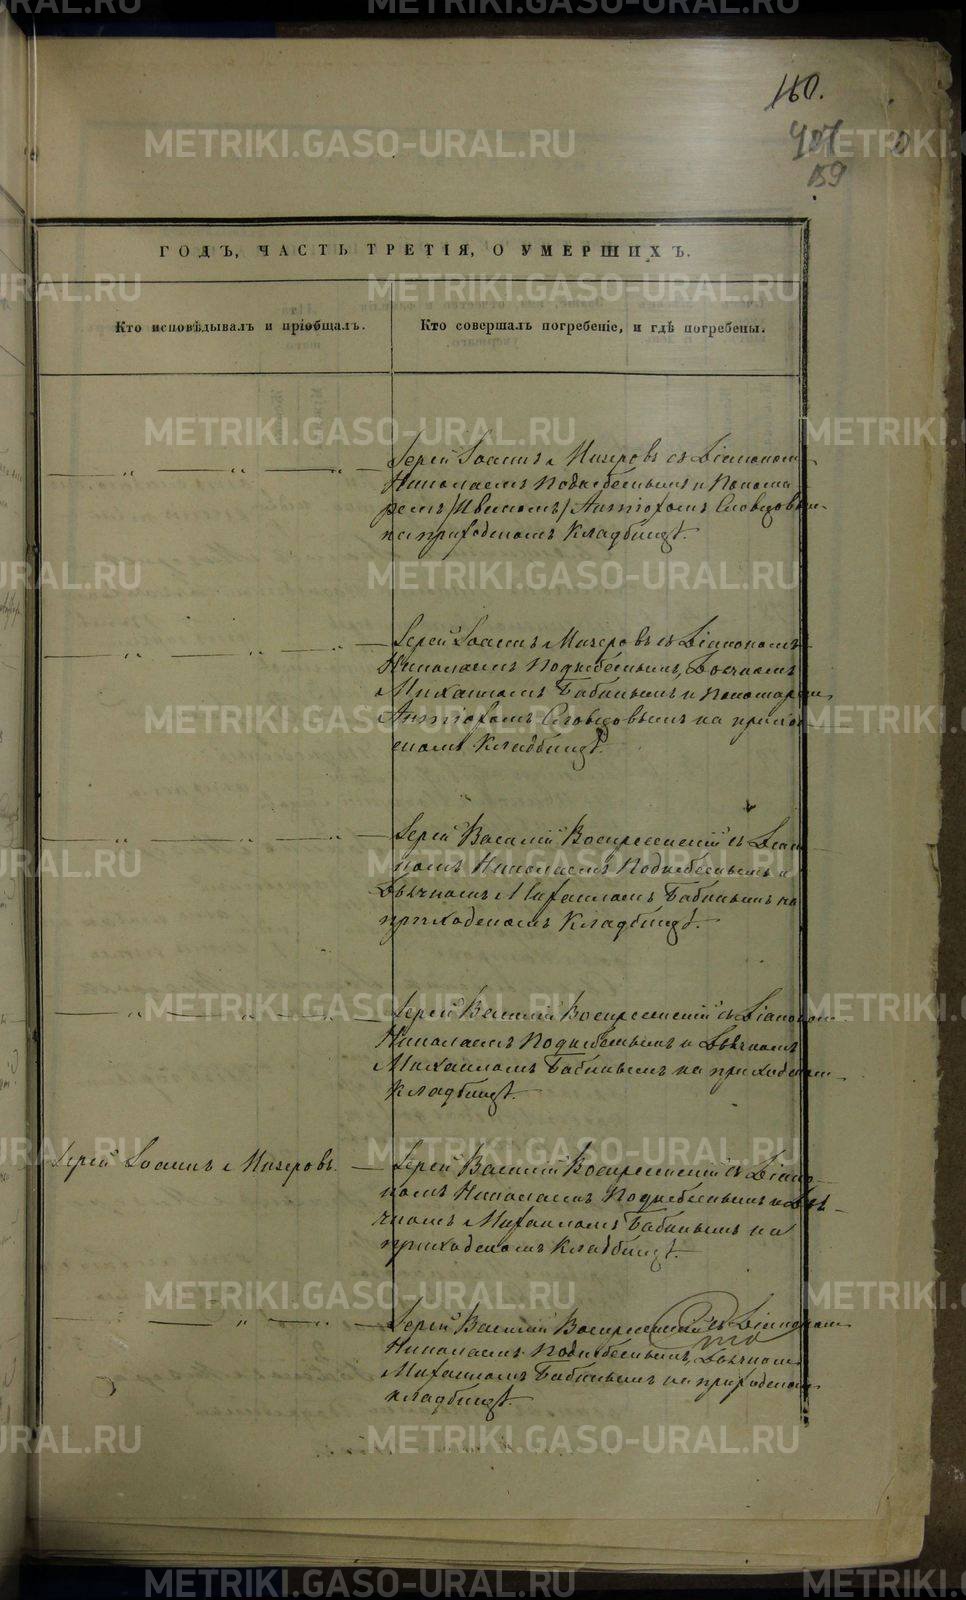 160.
407
159
ГОДЪ, ЧАСТЬ ТРЕТІЯ, О УМЕРШИХЪ.
Кто исповѣдывалъ и пріобщалъ.
Кто совершалъ погребеніе, и гдѣ погребены.
Іерей Іоаннъ Мизеровъ съ Діакономъ
Николаемъ Поднебеснымъ и Понома
ремъ Антіохомъ Словцовым
на приходскомъ кладбищѣ.
Іерей Іоаннъ Мизеровъ съ Діакономъ
Николаемъ Поднебеснымъ, Дьячкомъ
Михаиломъ Бабинымъ и Пономарем
Антіохомъ Словцовымъ на приход
скомъ кладбищѣ.
Іерей Василій Воскресенскій съ Діако
номъ Николаемъ Поднебеснымъ и
Дьячкомъ Михаиломъ Бабинымъ на
приходскомъ кладбищѣ.
Іерей Василій Воскресенскій съ Діаконом
Николаемъ Поднебеснымъ и Дьячкомъ
Михаиломъ Бабинымъ на приходском
кладбищѣ.
Іерей Іоаннъ Мизеровъ.
Іерей Василій Воскресенскій съ Діако
номъ Николаемъ Поднебеснымъ и Дья
чкомъ Михаиломъ Бабинымъ на
приходскомъ кладбищѣ.
Іерей Василій Воскресенскій съ Діаконом
Николаемъ Поднебеснымъ, Дьячком
Михаиломъ Бабинымъ на приходском
кладбищѣ.
METRIKI.GASO-URAL.RU